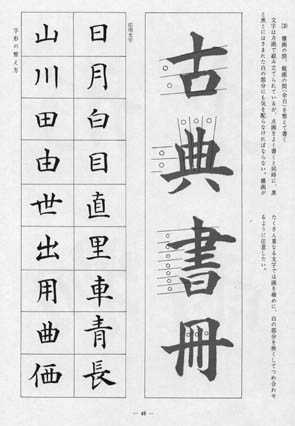 (3) 横画の間、縦画の間(余白)を整えて書く
文字は点画で組み立てられているが、点画をよく書くと同時に、黒
と黒とにはさまれた白の部分にも気を配らなければならない。横画が
たくさん重なる文字では画を細めに、白の部分を狭くしてつめ合わせ
るように注意したい。
古典書冊
応用文字
日月白目直里車青長
山川田由世出用曲価
字形の整え方
— 48 —